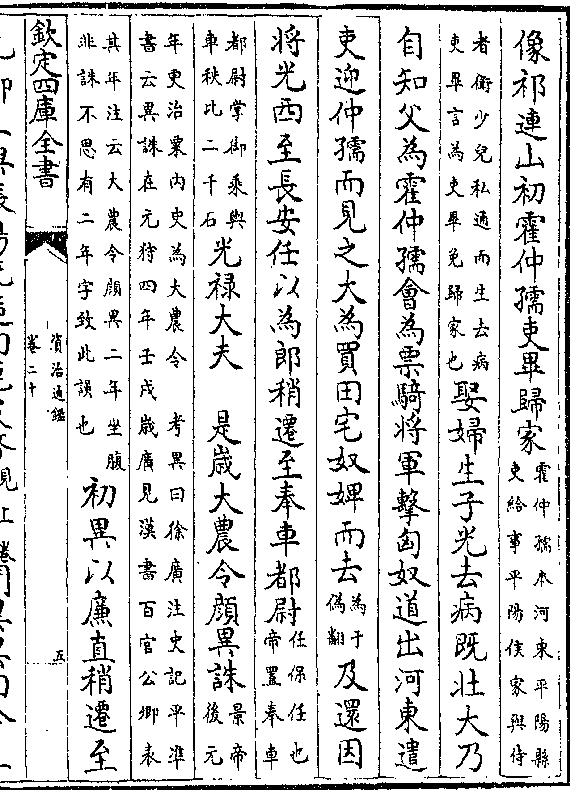 像祁連山初霍仲孺吏畢歸家霍仲孺本河東平陽縣
吏給事平陽侯家與侍
者衛少兒私通而生去病
吏畢言為吏畢免歸家也娶婦生子光去病既壯大乃
自知父為霍仲孺會為票騎將軍擊匈奴道出河東遣
吏迎仲孺而見之大為買田宅奴婢而去為于
偽翻及還因
將光西至長安任以為郎稍遷至奉車都尉任保任也
帝置奉車
都尉掌御乘輿
車秩比二千石光禄大夫 是歲大農令顔異誅景帝
後元
年更治粟内史為大農令 考異曰徐廣注史記平準
書云異誅在元狩四年壬戌歲廣見漢書百官公卿表
其年注云大農令顔異二年坐腹
非誅不思有二年字致此誤也初異以廉直稍遷至
欽定四庫全書
資治通鑑
卷二十
五